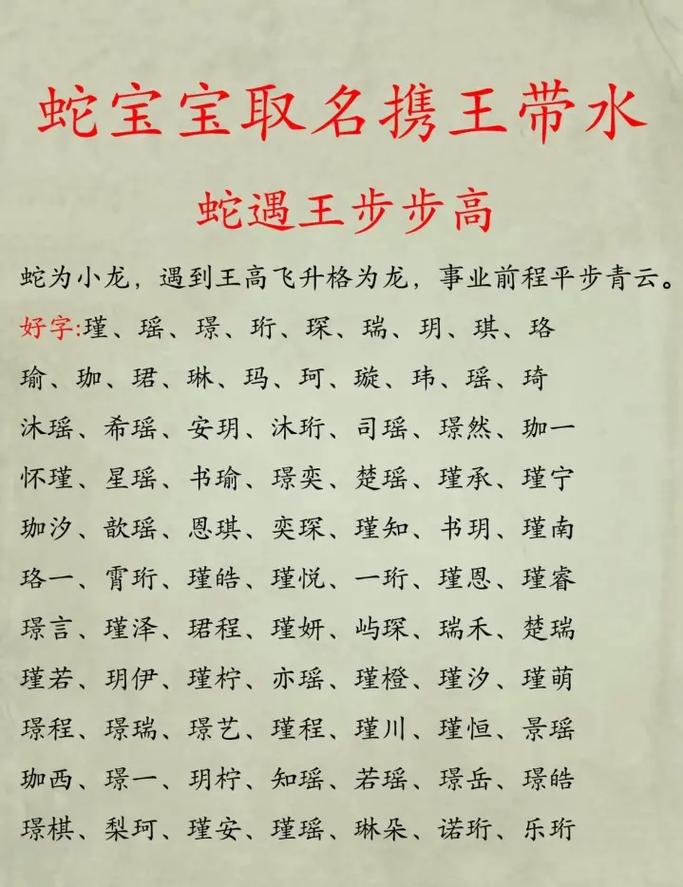 蛇宝宝取名携王带水
蛇遇王步步高
蛇为小龙，遇到王高飞升格为龙，事业前程平步青云。
好字:瑾、瑶、璟、珩、琛、瑞、玥、琪、珞
瑜、珈、珺、琳、玛、珂、璇、玮、瑶、琦
沐瑶、希瑶、安玥、沐珩、司瑶、璟然、珈一
怀瑾、星瑶、书瑜、璟奕、楚瑶、瑾承、瑾宁
珈汐、歆瑶、恩琪、奕琛、瑾知、书玥、瑾南
珞一、霄珩、瑾皓、瑾悦、一珩、瑾恩、瑾睿
璟言、瑾泽、珺程、瑾妍、屿琛、瑞禾、楚瑞
瑾若、玥伊、瑾柠、亦瑶、瑾橙、瑾汐、瑾萌
璟程、璟瑞、璟艺、瑾程、瑾川、瑾恒、景瑶
珈西、璟一、玥柠、知瑶、若瑶、璟岳、璟皓
璟棋、梨珂、瑾安、瑾瑶、琳朵、诺珩、乐珩